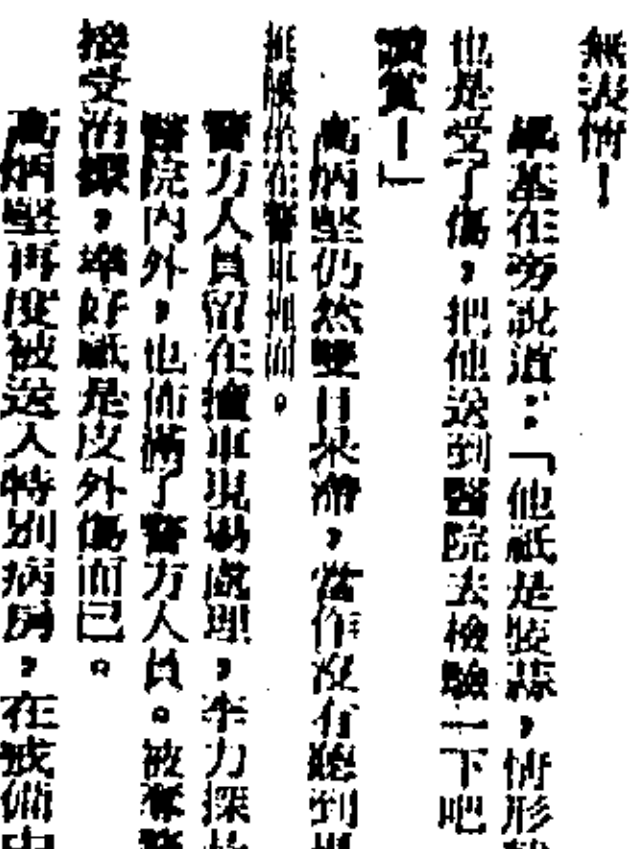 無表情！
畢基在旁說道：「他祇是裝蒜，情形
也是受了傷，把他送到醫院去檢驗一下吧
高炳堅仍然雙目呆滯，當作沒有聽到
在警車裡面。
警方人員留在撞車現場處理，李力探
醫院內外，也佈滿了警方人員。被奪
接受治療，幸好祇是皮外傷而已。
高炳堅再度被送入特別病房，在戒備中